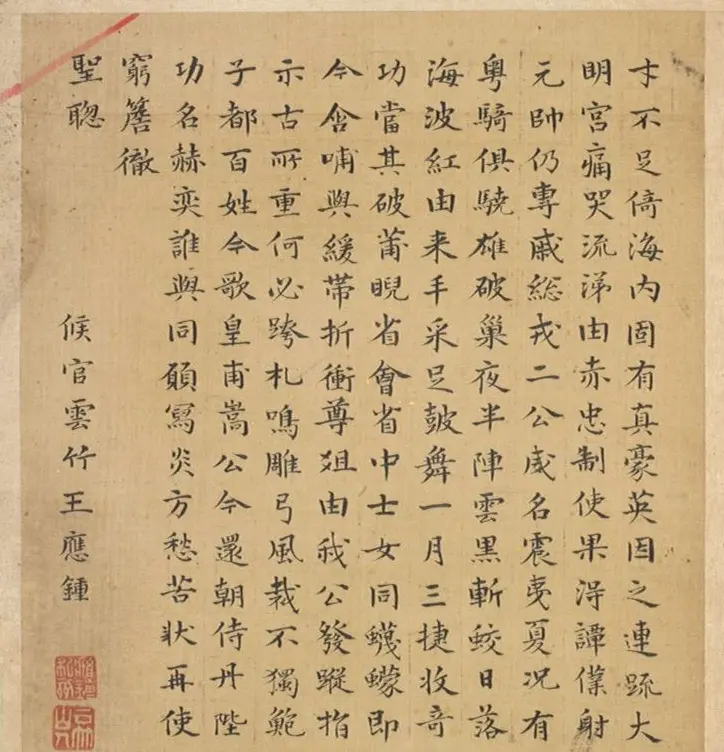 才不足倚海内固有真豪英因之連疏大
明宫痛哭流涕由赤忠制使果淂譚僕射
元帥仍專戚総戎二公威名震夷夏况有
粤騎俱驍雄破巢夜半陣雲黑斬蛟日落
海波紅由来手采足鼓舞一月三捷收竒
功當其破莆睨省會省中士女同蠛蠓即
今含哺與緩帶折衝尊俎由我公發蹤指
示古所重何必跨札鳴雕弓風裁不獨範
子都百姓今歌皇甫嵩公今還朝侍丹陛
功名赫奕誰與同願寫炎方愁苦狀再使
窮簷徹
聖聰
候官雲竹王應鍾